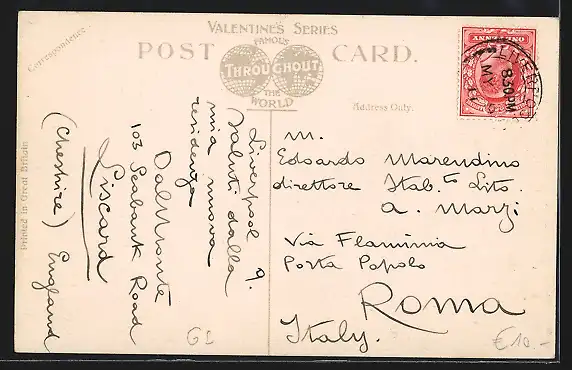 VALENTINE'S SERIES
FAMOUS
THROUGHOUT
THE
WORLD
POST CARD.
Correspondence.
Address Only.
Printed in Great Britain
LIVERPOOL
8.30 PM
MY
Liverpool 9.
Saluti dalla
mia nuova
residenza
Dalmonte
103 Seabank Road
Liscard
(Cheshire) England
M.
Edoardo Marendino
direttore Stab.to Lito.
A. Marzi
Via Flaminia
Porta Popolo
Roma
Italy.
€10.-